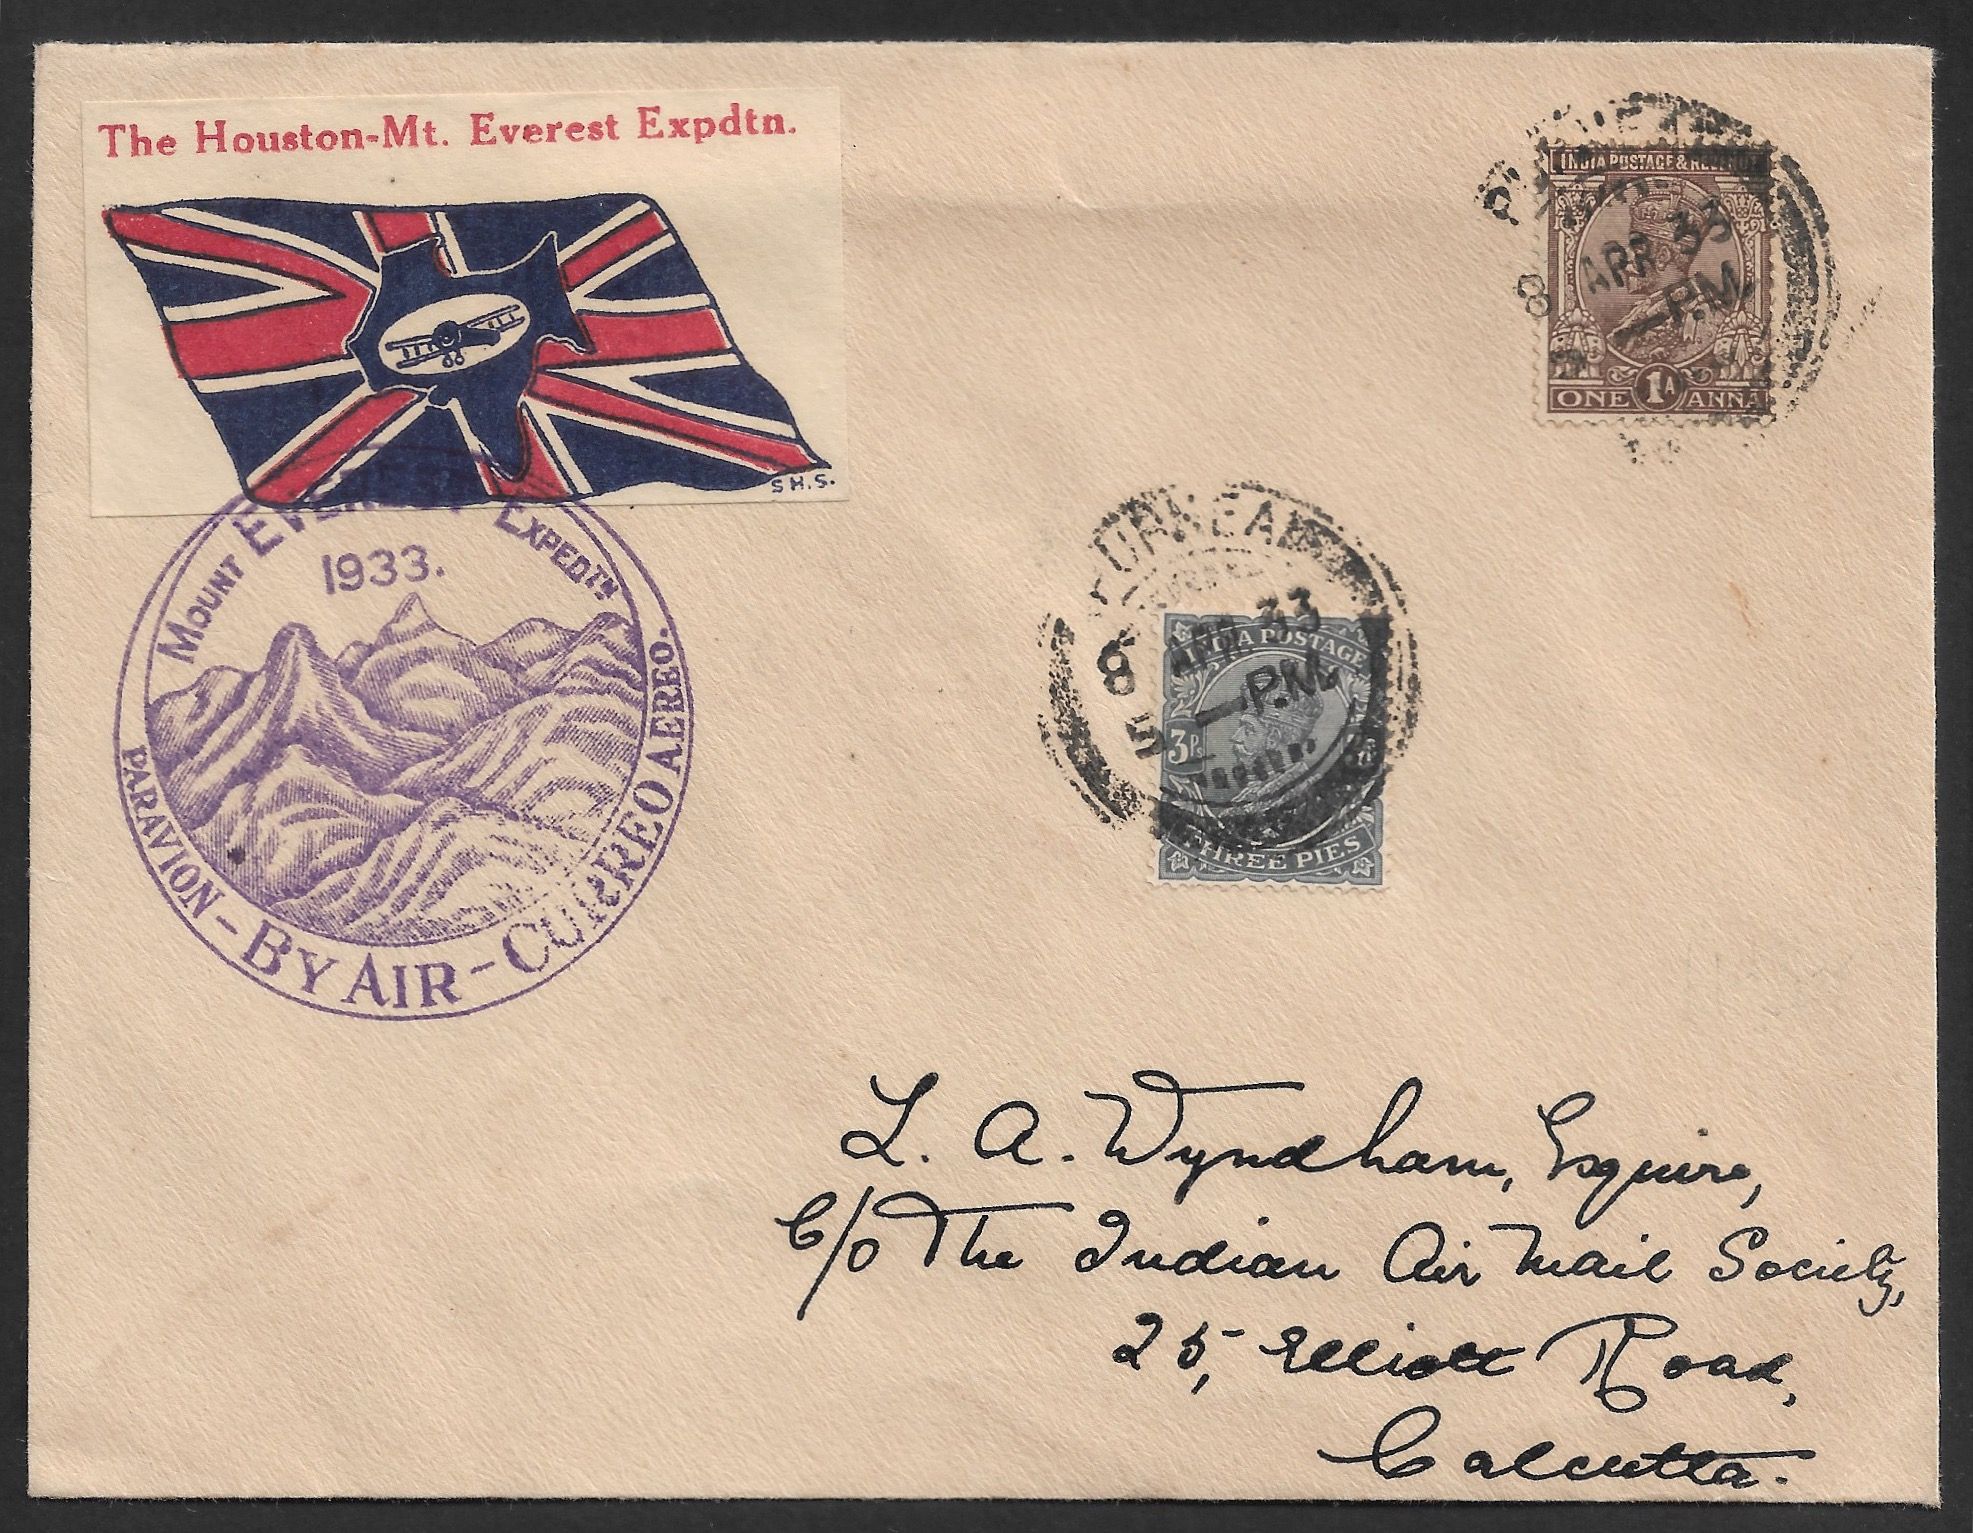 The Houston-Mt. Everest Expdtn.
S H.S.
MOUNT EVEREST EXPEDTN
1933.
PARAVION - BY AIR - CURREO AEREO.
INDIA POSTAGE & REVENUE
8 APR 33
P.M.
ONE 1A ANNA
PURNEAH
8 APR 33
5 P.M.
INDIA POSTAGE
3Ps
THREE PIES
L. A. Wyndham, Esquire,
C/o The Indian Air Mail Society,
25, Elliott Road,
Calcutta.